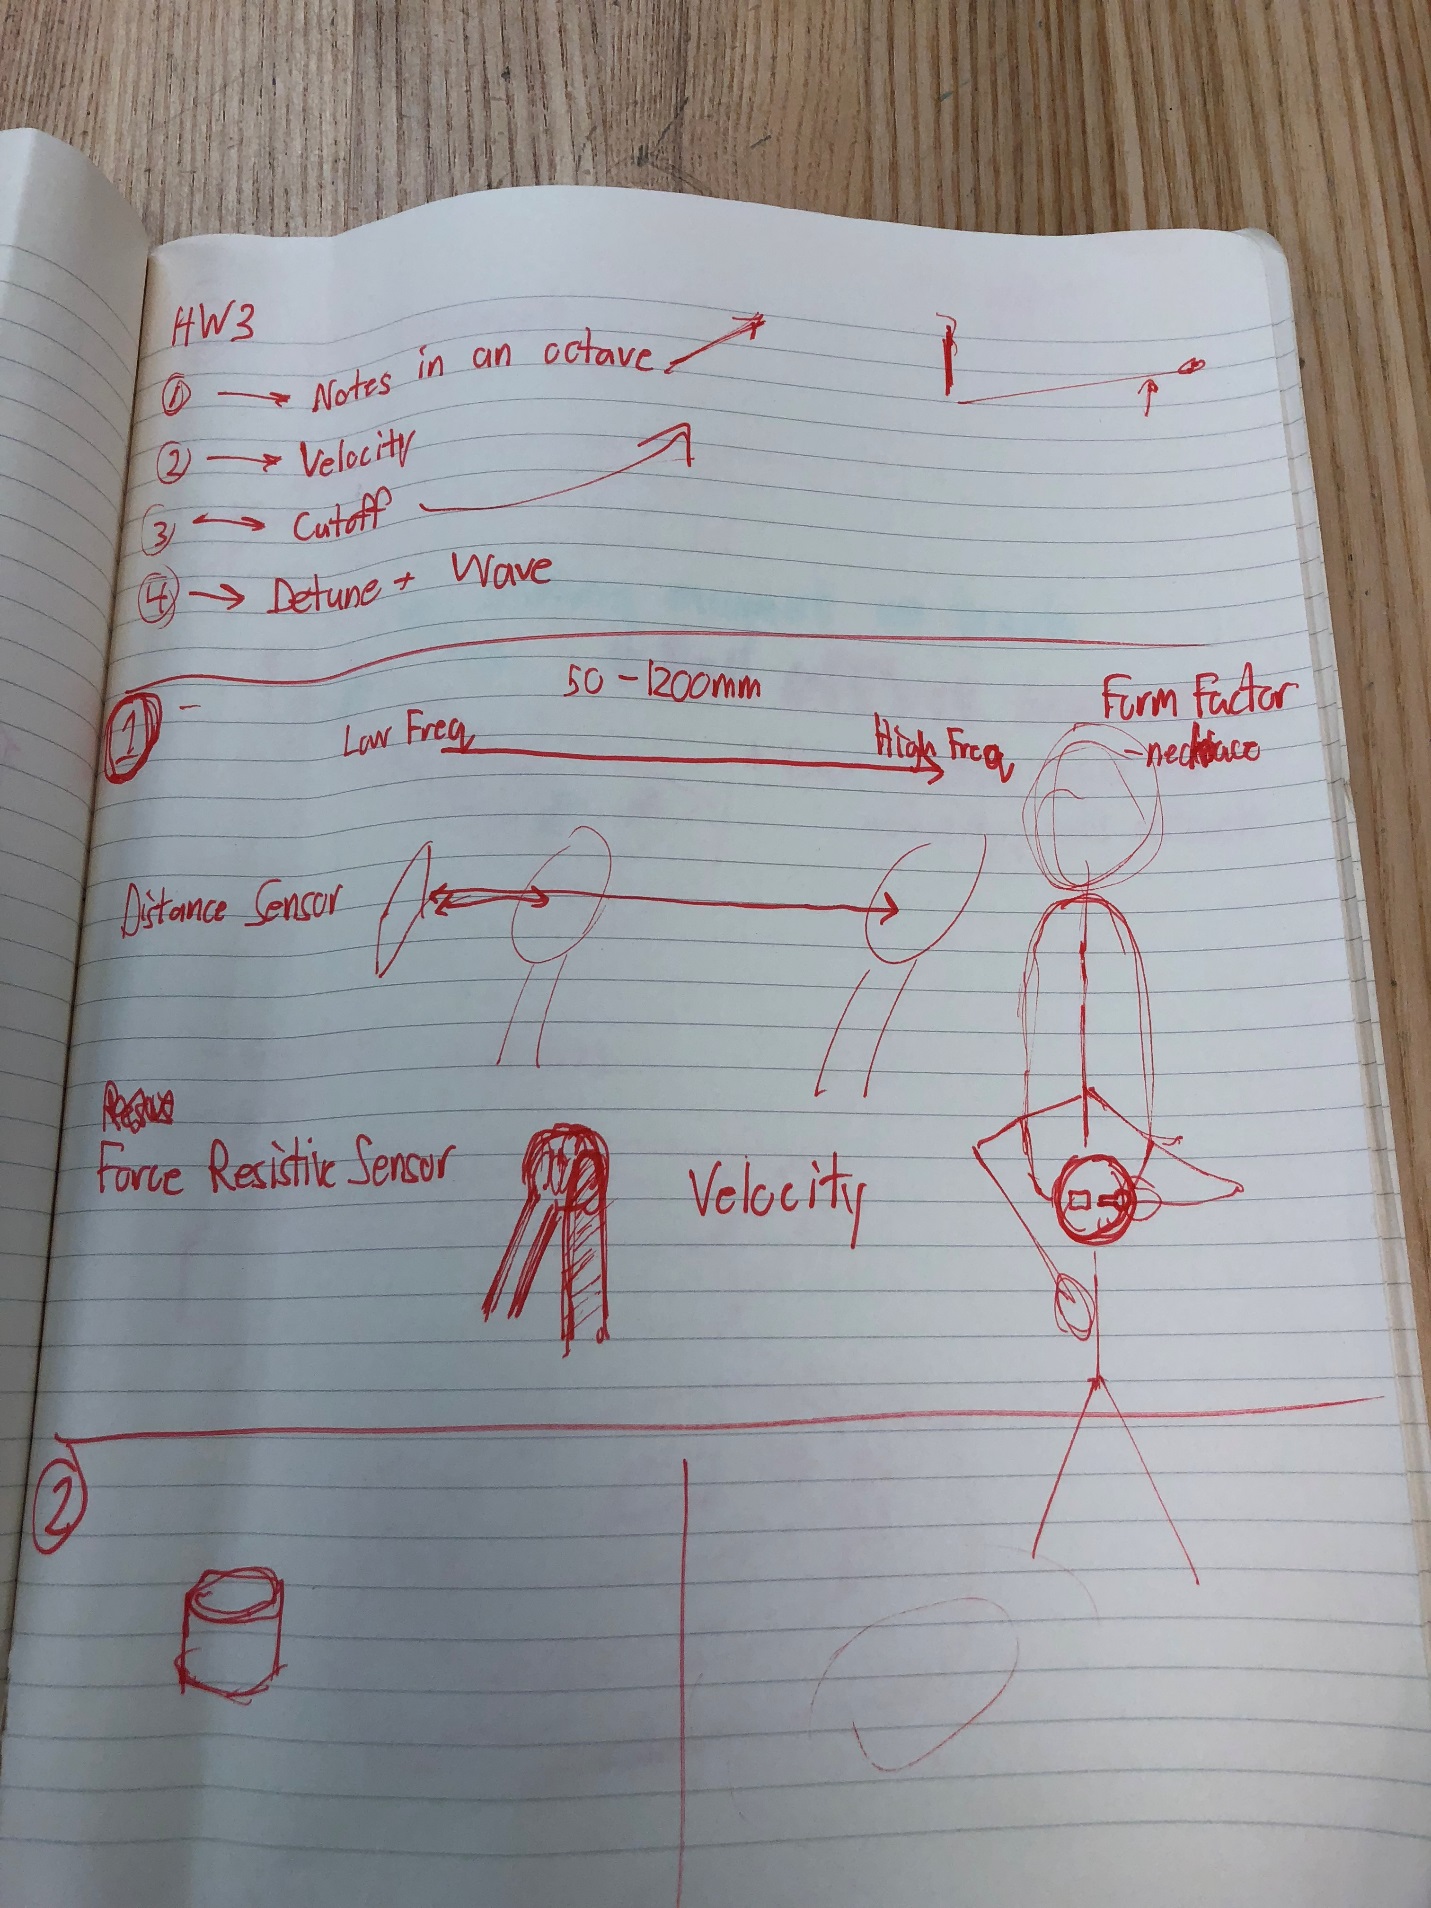 HW3
① → Notes in an octave
② → Velocity
③ → Cutoff
④ → Detune + Wave
50-1200mm
① -
Low Freq
High Freq
Form Factor
-necklace
Distance Sensor
Force Resistive Sensor
Velocity
②